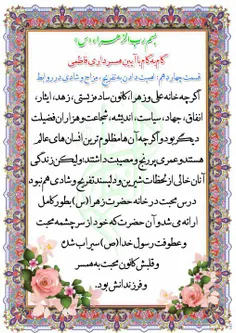 بسم رب الزهراء «س»
گام به گام با آیین همسرداری فاطمی
قسمت چهاردهم: اهمیت دادن به تفریح، مزاح و شادی در روابط
اگرچه خانه علی و زهرا، کانون ساده زیستی، زهد، ایثار،
انفاق، جهاد، سیاست، اندیشه، شجاعت و هزاران فضیلت
دیگر بود و اگرچه آن ها مظلوم ترین انسان های عالم
هستند و عمری پر رنج و مصیبت داشتند، ولیکن زندگی
آنان خالی از لحظات شیرین و دلپسند تفریح و شادی هم نبود
درس محبت در خانه حضرت زهرا (س) بطور کامل
ارائه می شد و آن حضرت که خود از سرچشمه محبت
و عطوفت رسول خدا (ص) سیراب شده
و قلبش کانون محبت به همسر
و فرزندانش بود.